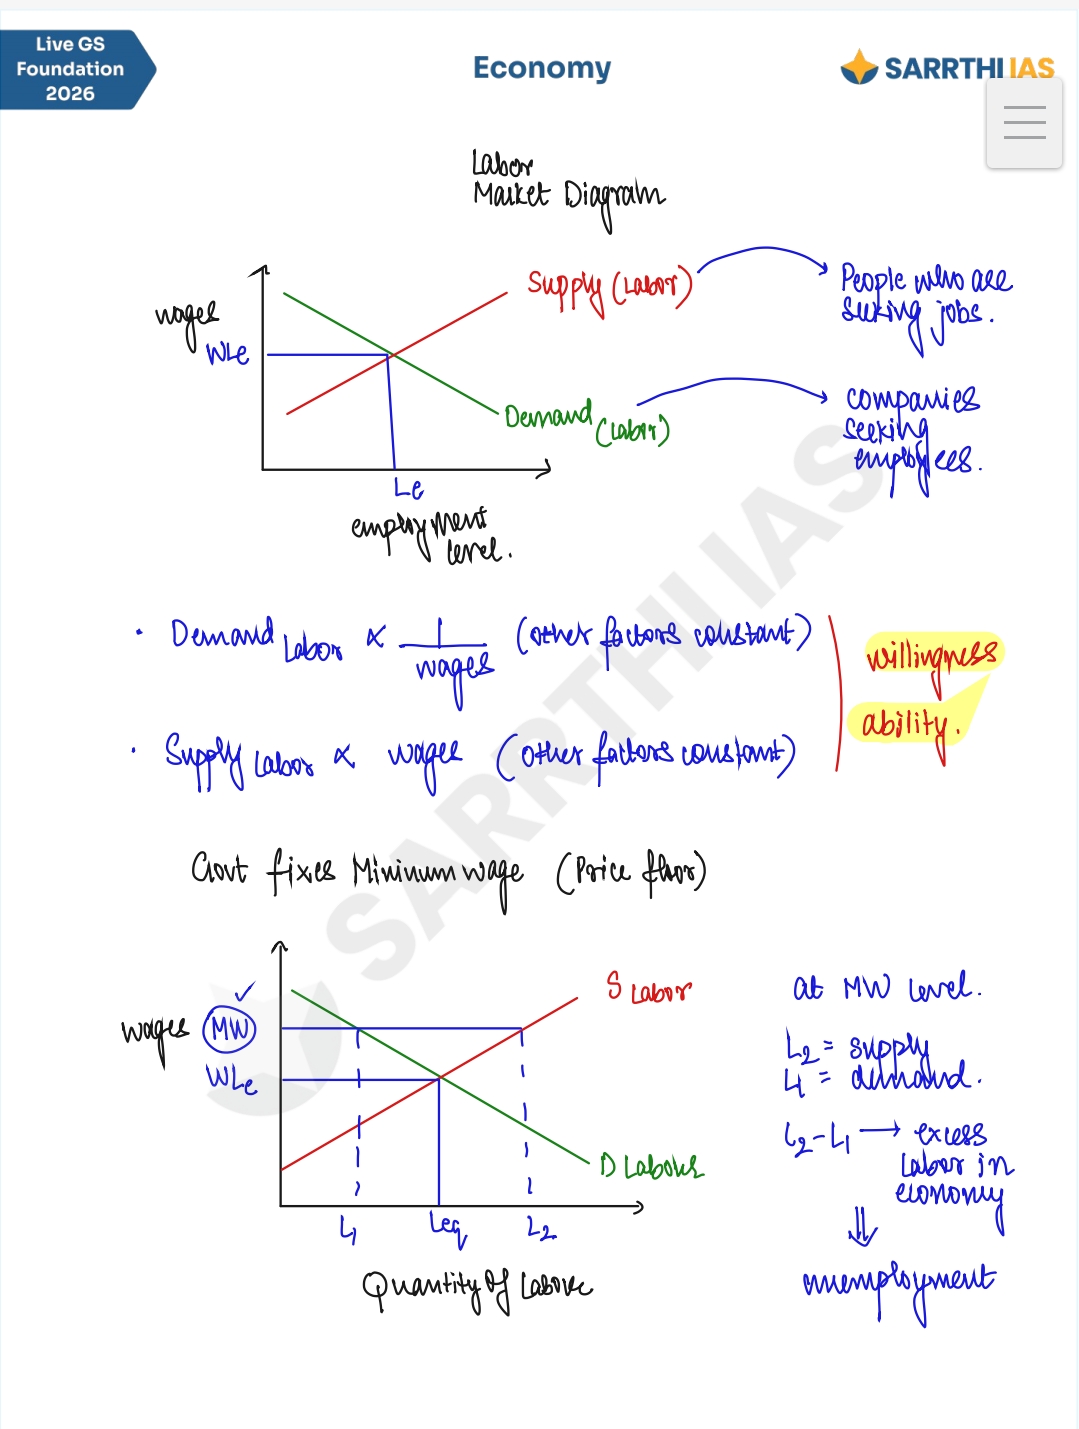 Live GS
Foundation
2026
Economy
SARRTHI IAS
Labor
Market Diagram
Supply (Labor)
People who are
seeking jobs.
wages
WLe
Demand (Labor)
companies
seeking
employees.
Le
employment
level.
• Demand Labor ∝ 1/wages (other factors constant)
willingness
ability.
• Supply Labor ∝ wages (other factors constant)
Govt fixes Minimum wage (Price floor)
S Labor
at MW level.
wages MW ✓
L2 = supply
WLe
L1 = demand.
L2-L1 → excess
Labor in
economy
D Labour
L1 Leq L2
⇓
Quantity of Labour
unemployment
SARRTHI IAS